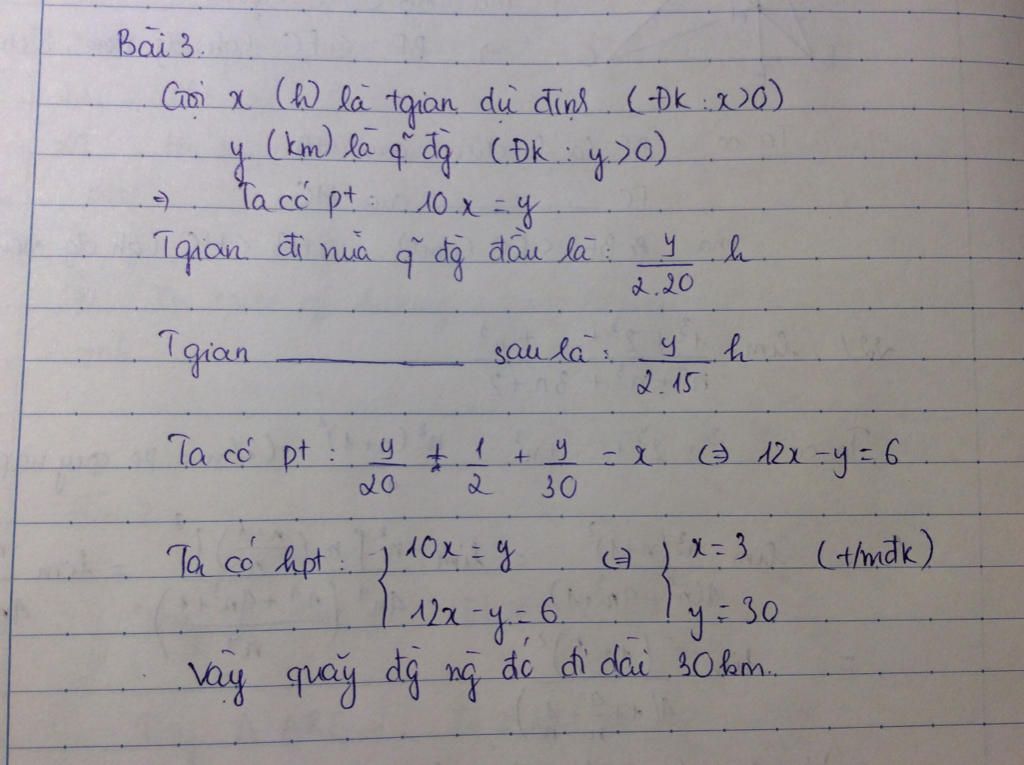 Bài 3.
Gọi x (h) là tgian dự định (ĐK: x>0)
y (km) là q̃ đg̀ (ĐK: y>0)
⇒ Ta có pt: 10x = y
Tgian đi nửa q̃ đg̀ đầu là: y/2.20 h
Tgian ———— sau là: y/2.15 h
Ta có pt: y/20 + 1/2 + y/30 = x ⇔ 12x - y = 6
Ta có hpt: { 10x = y ⇔ { x = 3 (t/mđk)
12x - y = 6 y = 30
Vậy quãy đg̀ ng̀ đó đi dài 30km.